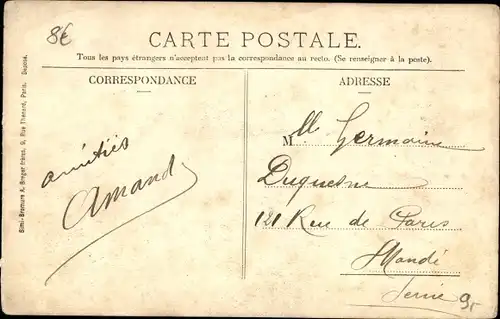 8€
CARTE POSTALE.
Tous les pays étrangers n'acceptent pas la correspondance au recto. (Se renseigner à la poste).
CORRESPONDANCE
ADRESSE
Simi-Bromure A. Breger frères, 9, Rue Thénard, Paris.
amitiés
Amand
Mll Germaine
Duquesne
121 Rue de Paris
St Mandé
Seine